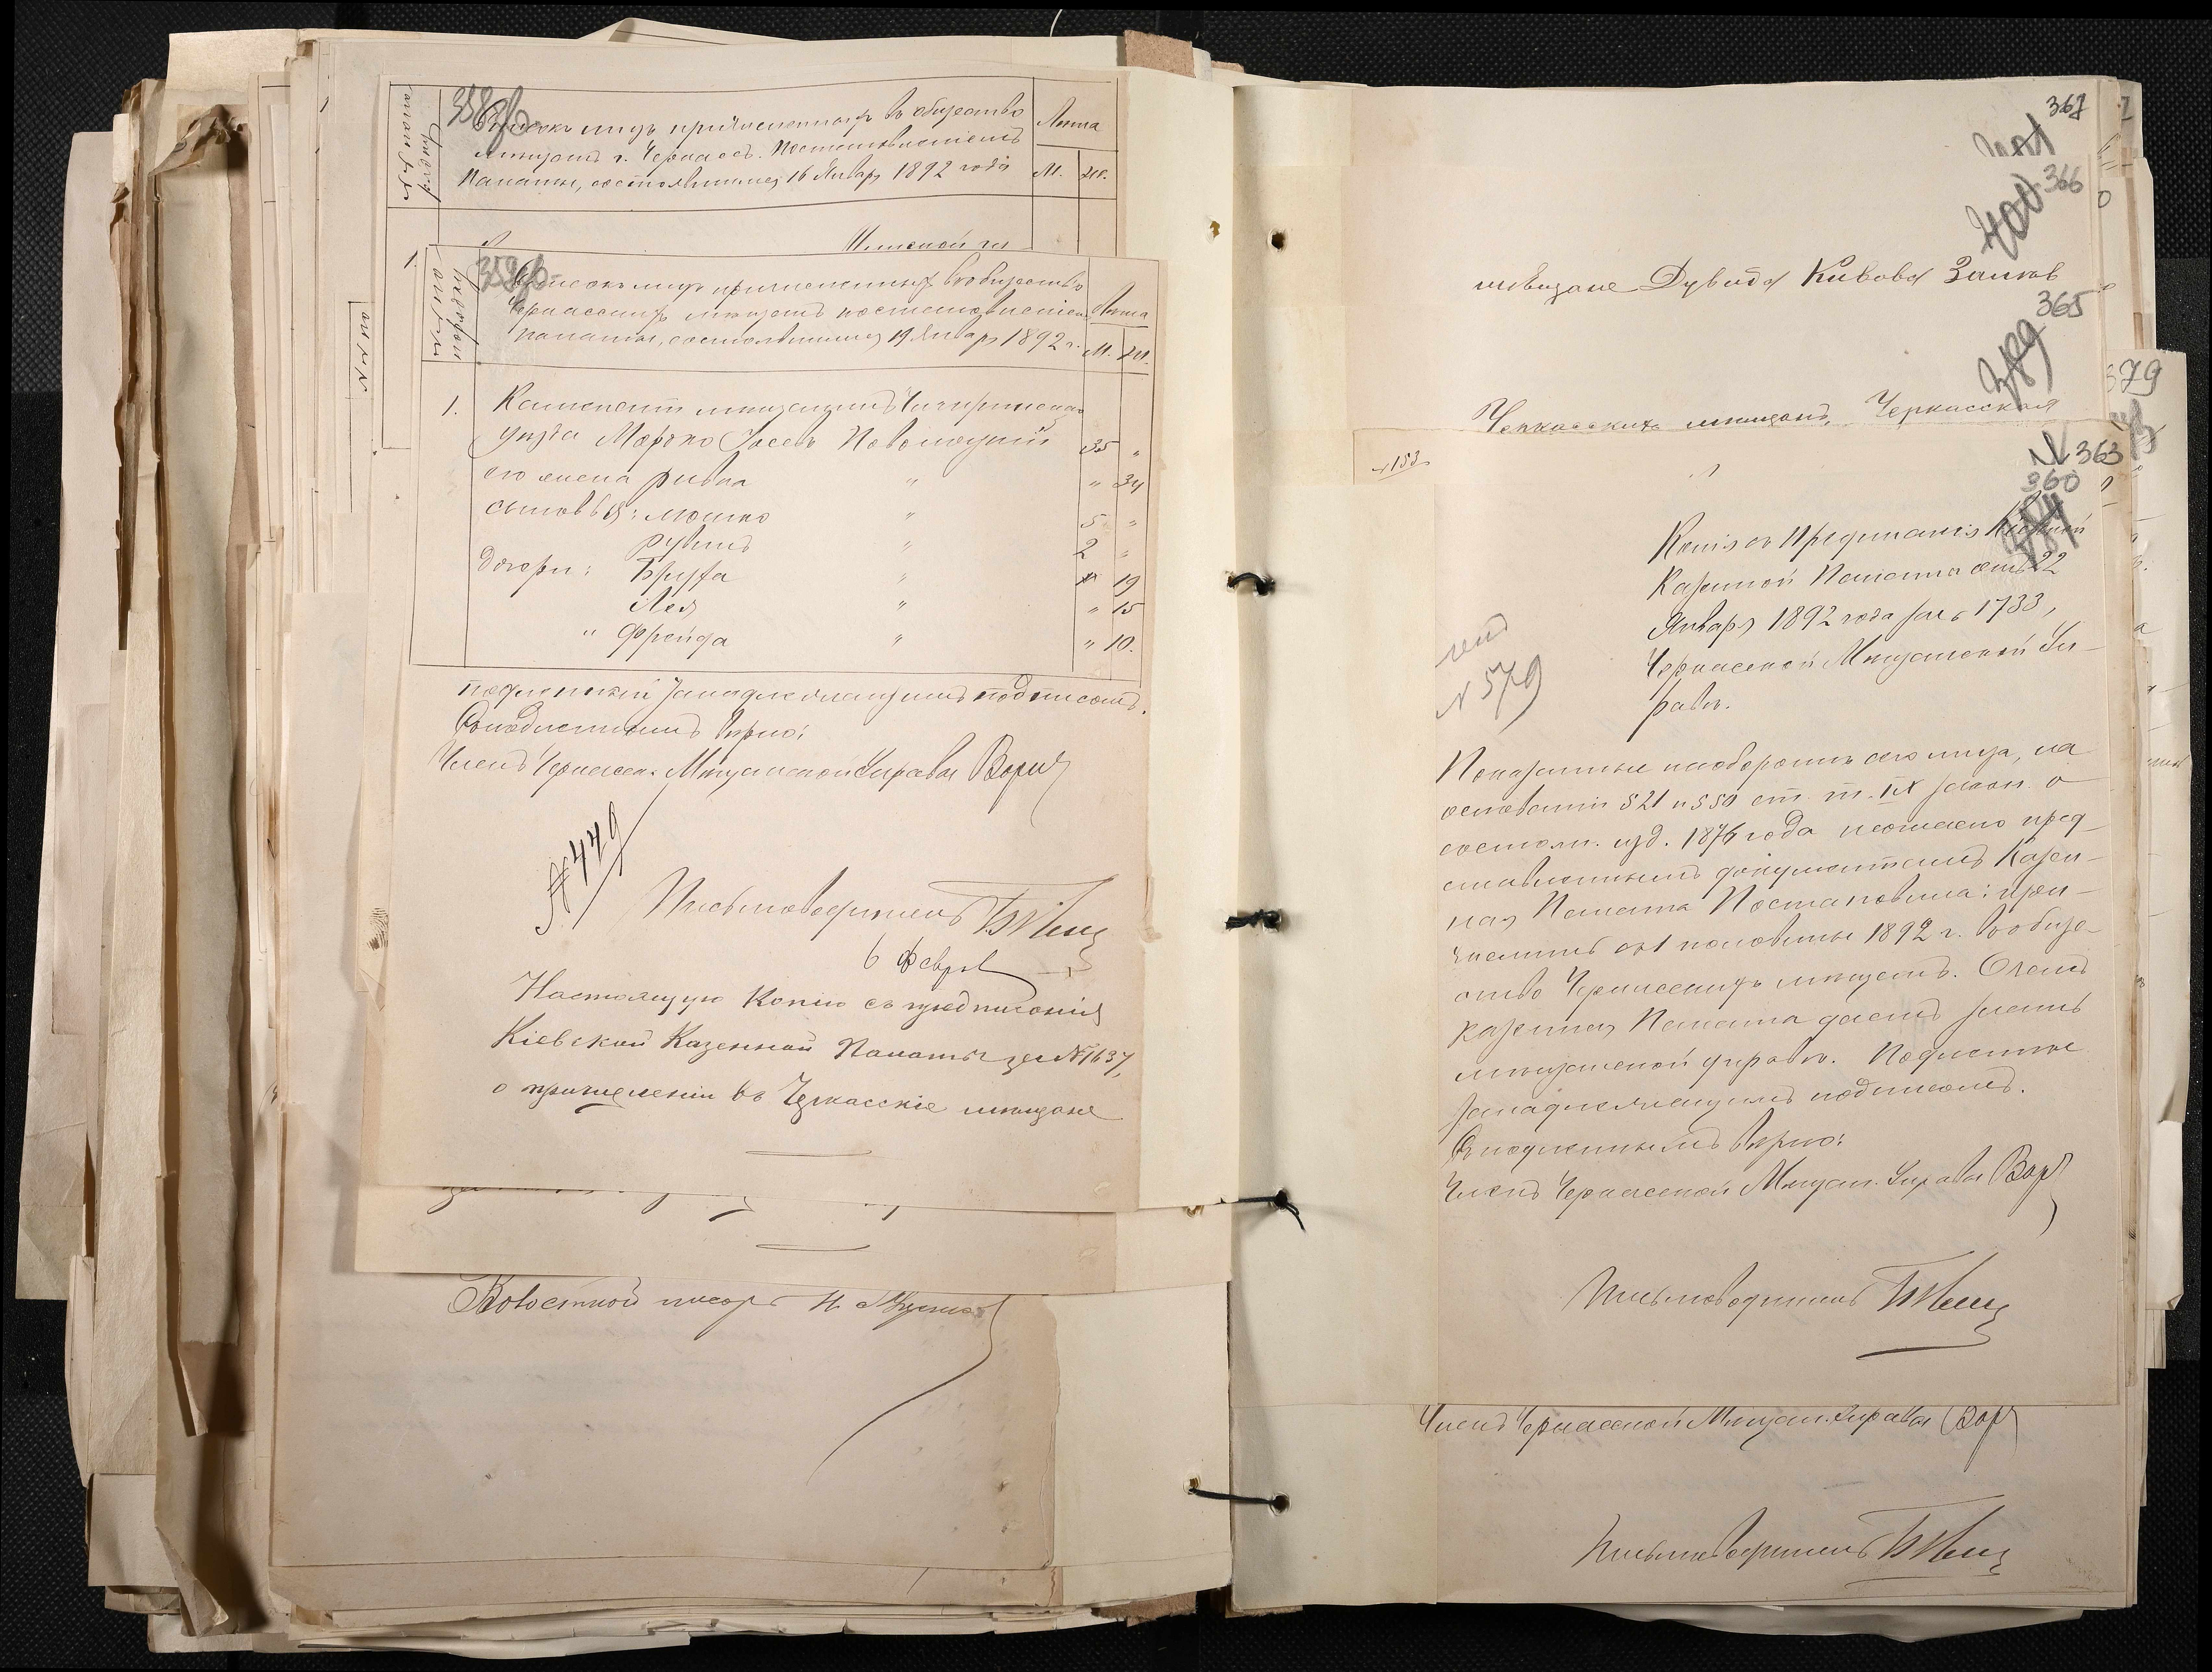 358об.
Списокъ лицъ причисленныхъ въ общество
мѣщанъ г. Черкассъ. Постановленіемъ
Палаты, состоявшимся 16 Января 1892 года
Лѣта
М. Ж.
1.
359об.
Списокъ лицъ причисленныхъ въ общество
Черкасскихъ мѣщанъ постановленіемъ
палаты, состоявшимся 19 Января 1892 г.
Лѣта
М. Ж.
1. мѣщанинъ Чигиринскаго
уѣзда 35 "
его жена Ривка " " 34
сыновья: Мошко " 5 "
Рувинъ " 2 "
дочери: Бруха " " 19
Лея " " 15
" Фрейда " " 10.
подлинный за надлежащимъ подписомъ.
Съ подлиннымъ вѣрно:
Членъ Черкасск. Мѣщанской Управы
№ 449
Письмоводитель
6 Февраля
Настоящую Копію съ предписанія
Кіевской Казенной Палаты за № 1637,
о причисленіи въ Черкасскіе мѣщане
Волостной писарь
367
401
366
400
мѣщане Дувида Кивова
365
389
Черкасскихъ мѣщанъ, Черкасская
№ 153
363
360
Копія съ Предписанія Кіевской
Казенной Палаты отъ 22
Января 1892 года за № 1733,
Черкасской Мѣщанской Уп-
равѣ.
№ 579
Показанные на оборотѣ сего лица, на
основаніи 521 и 550 ст. т. IX закон. о
состоян. изд. 1876 года согласно пред-
ставленнымъ документамъ Казен-
ная Палата Постановила: при-
числить съ 1 половины 1892 г. въ обще-
ство Черкасскихъ мѣщанъ. О чемъ
казенная Палата даетъ знать
мѣщанской управѣ. Подлинное
за надлежащимъ подписомъ.
Съ подлиннымъ вѣрно:
Членъ Черкасской Мѣщан. Управы
Письмоводитель
Членъ Черкасской Мѣщан. Управы
Письмоводитель
379